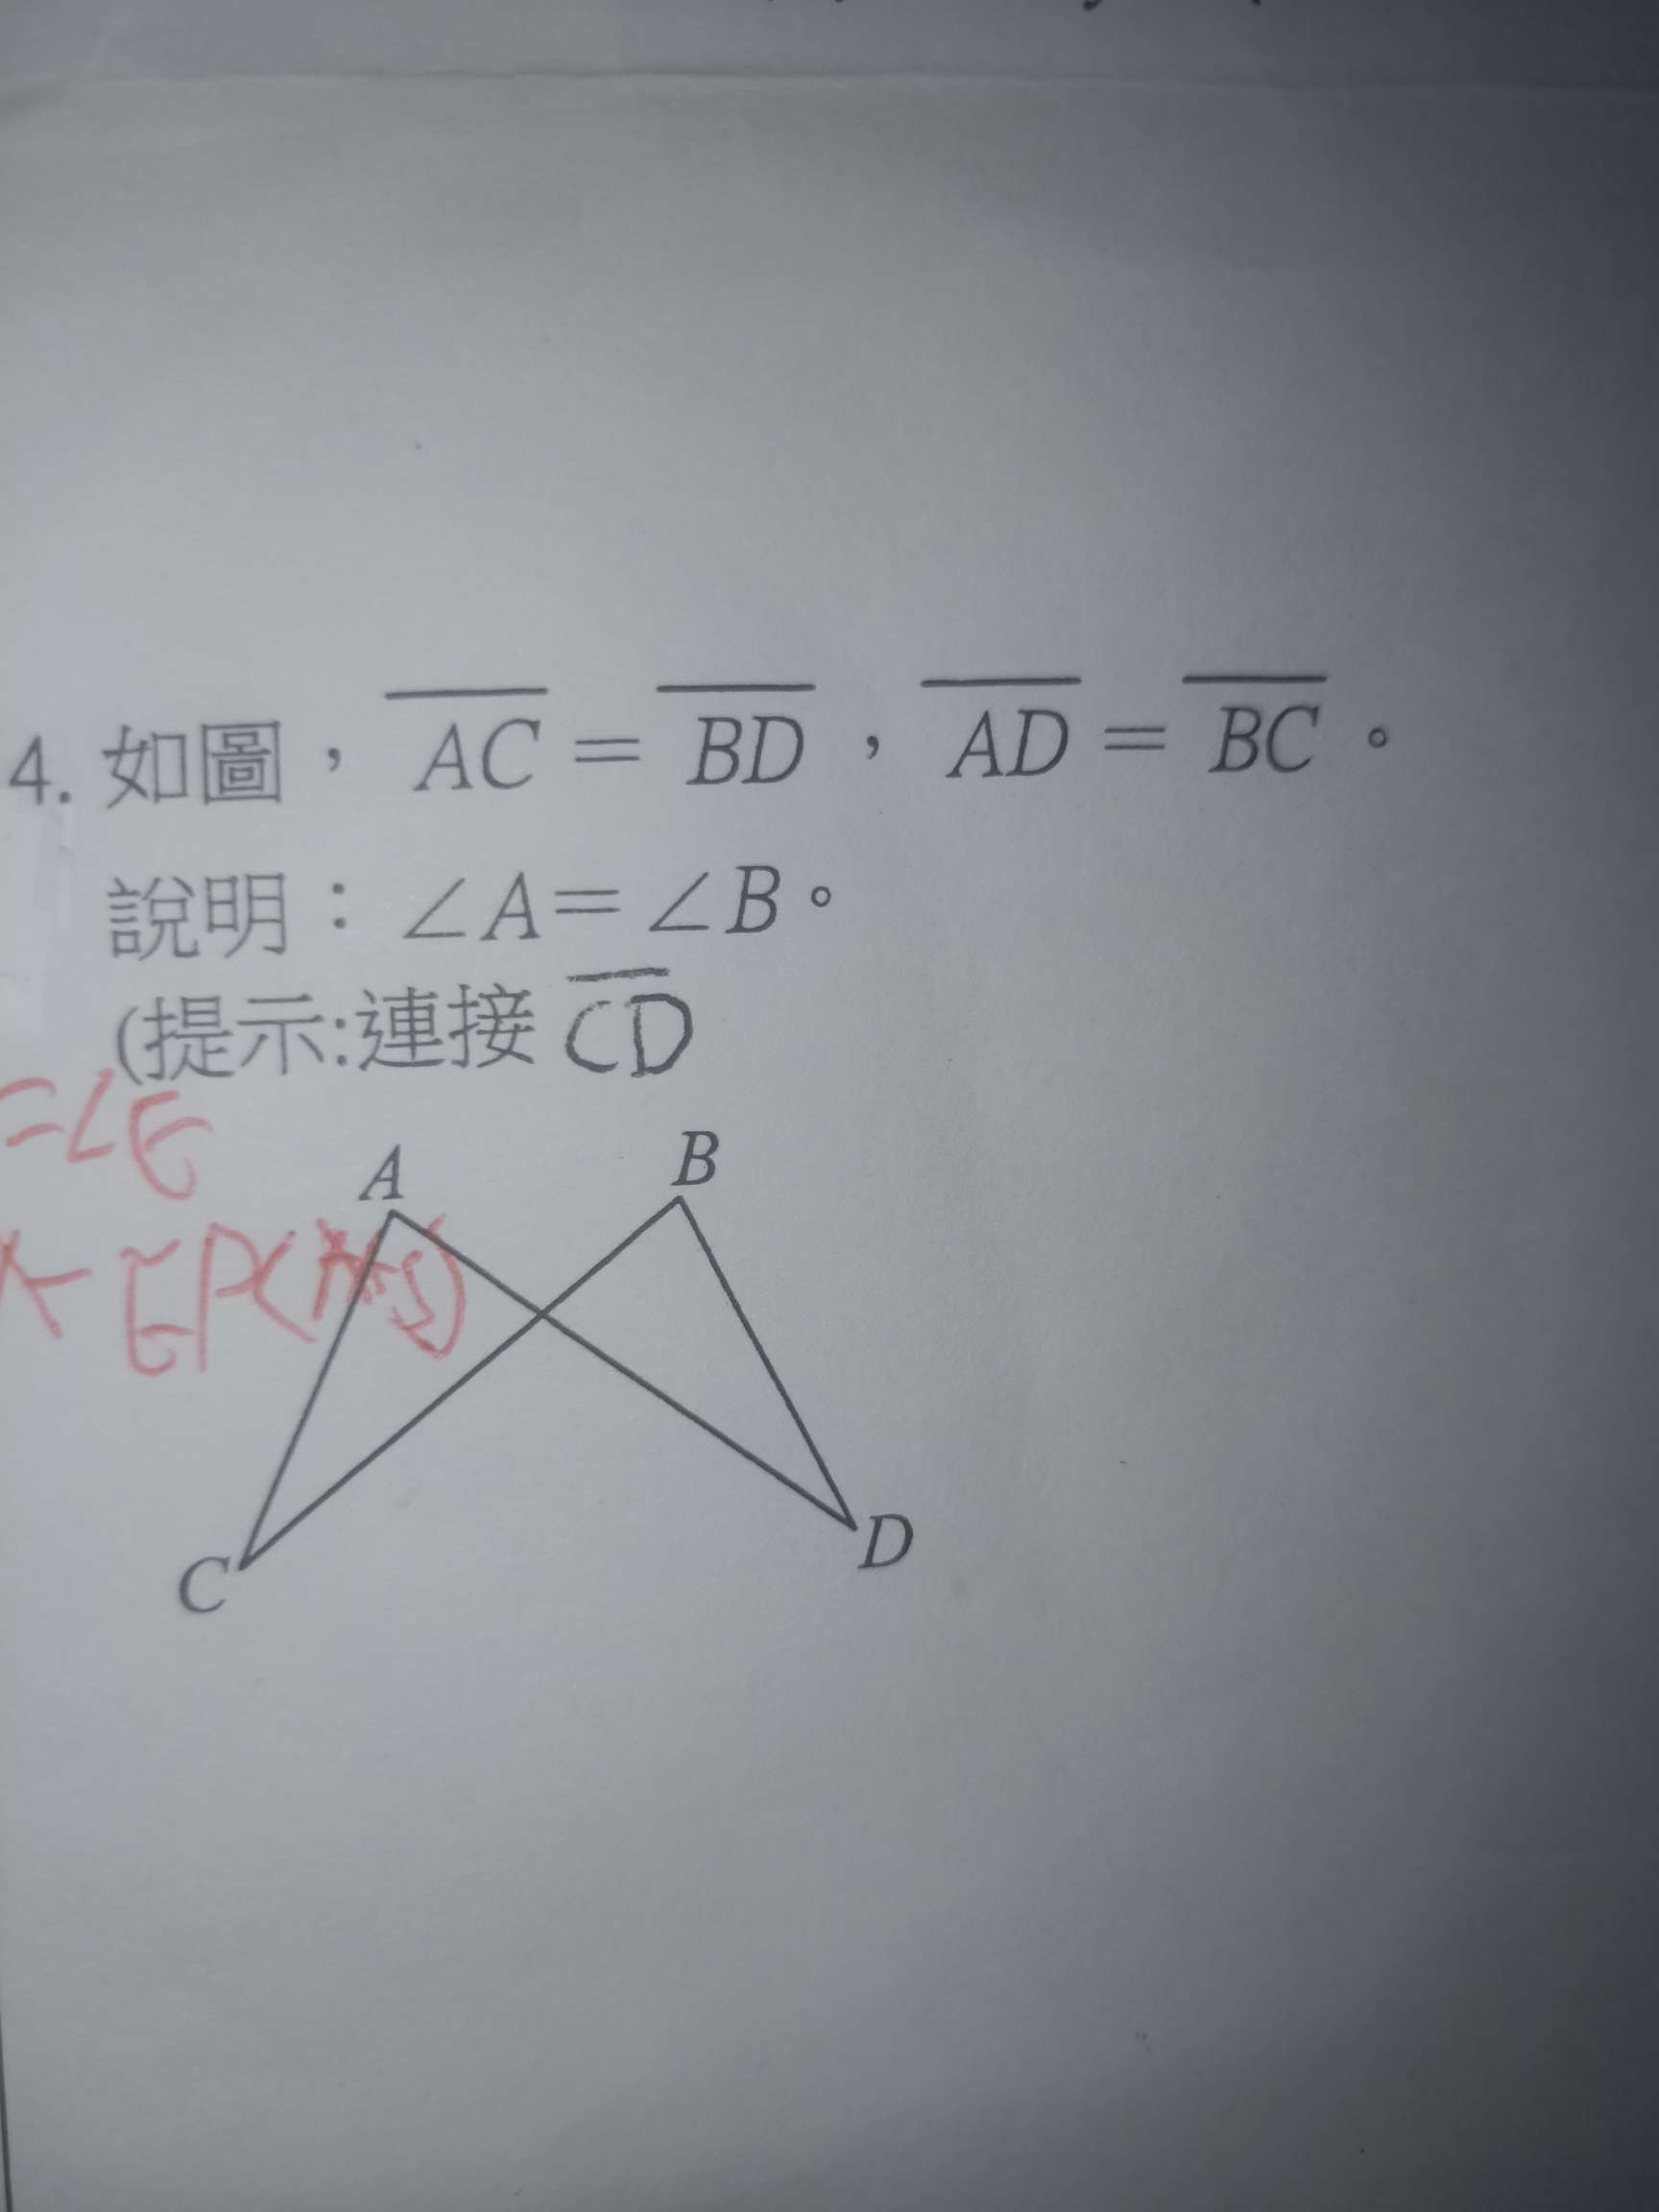 4. 如圖，AC = BD，AD = BC。
說明：∠A=∠B。
(提示:連接 CD
=∠E
A
B
C
D